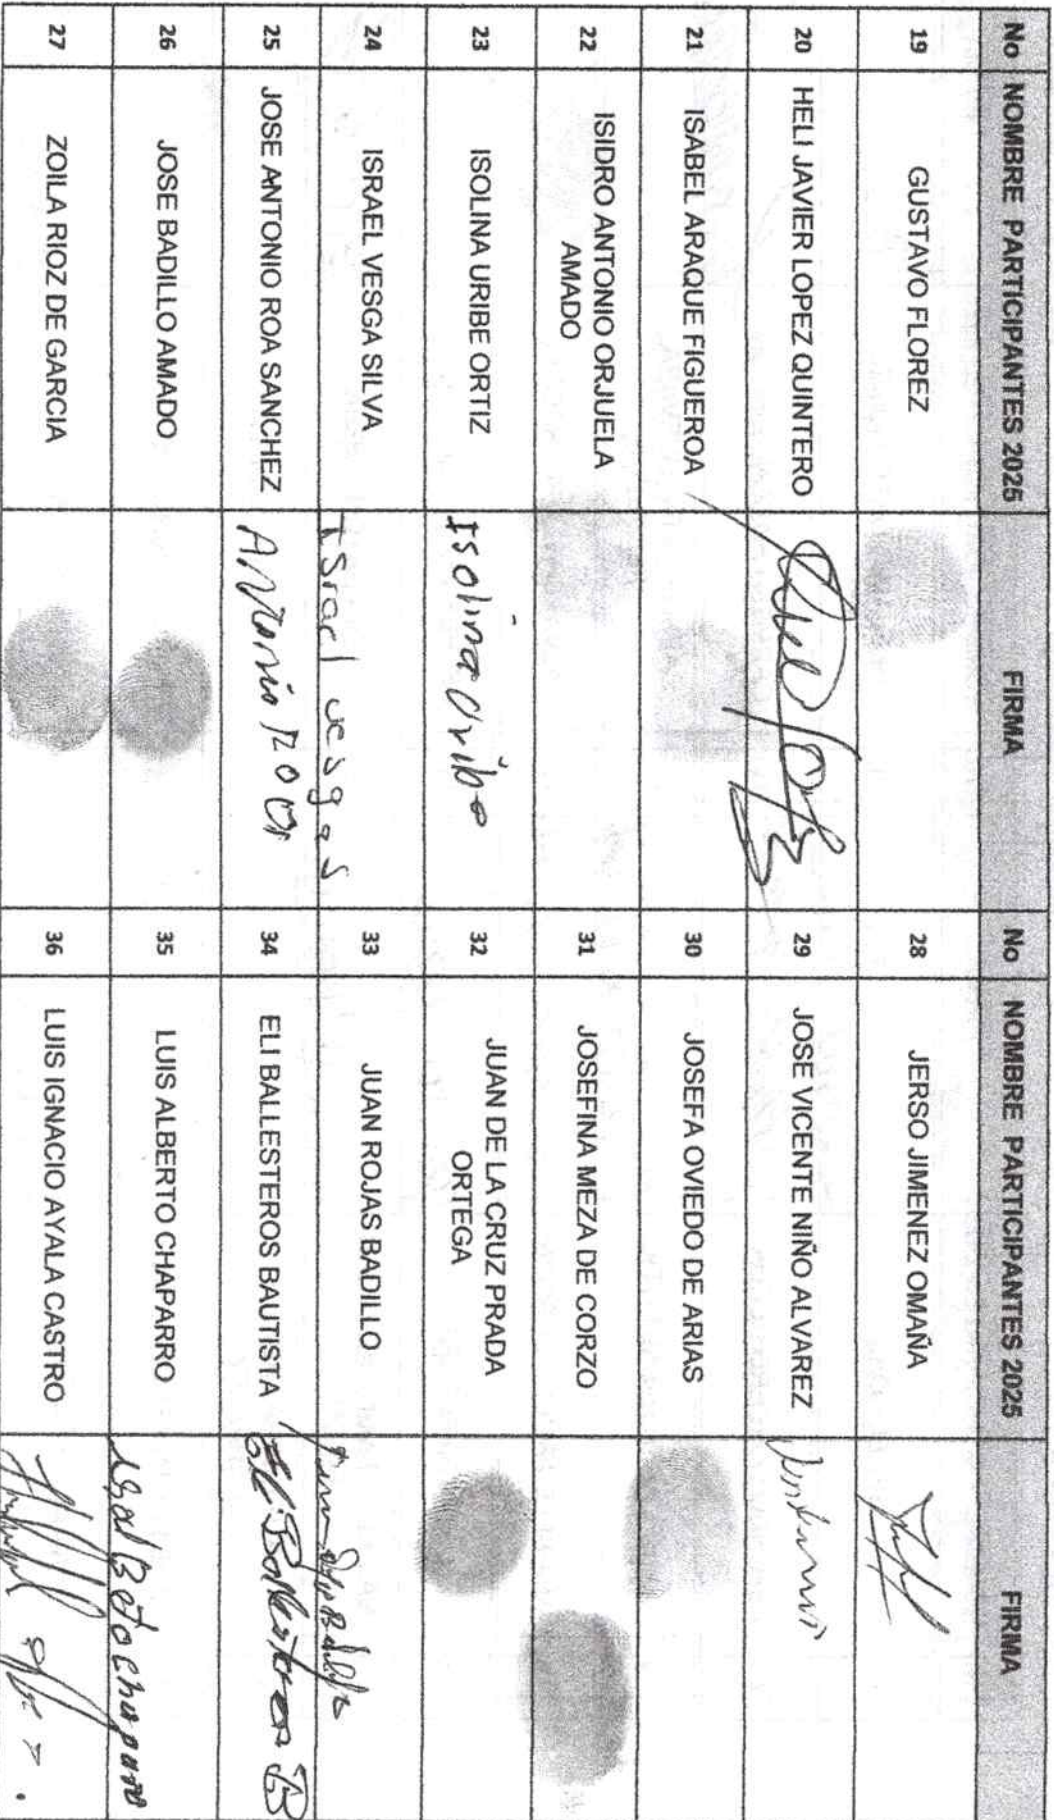 No NOMBRE PARTICIPANTES 2025 FIRMA No NOMBRE PARTICIPANTES 2025 FIRMA
19 GUSTAVO FLOREZ 28 JERSO JIMENEZ OMAÑA
20 HELI JAVIER LOPEZ QUINTERO 29 JOSE VICENTE NIÑO ALVAREZ
21 ISABEL ARAQUE FIGUEROA 30 JOSEFA OVIEDO DE ARIAS
22 ISIDRO ANTONIO ORJUELA AMADO 31 JOSEFINA MEZA DE CORZO
23 ISOLINA URIBE ORTIZ Isolina Uribe 32 JUAN DE LA CRUZ PRADA ORTEGA
24 ISRAEL VESGA SILVA Israel vesga S 33 JUAN ROJAS BADILLO
25 JOSE ANTONIO ROA SANCHEZ Antonio Roa 34 ELI BALLESTEROS BAUTISTA Eli Ballesteros B
26 JOSE BADILLO AMADO 35 LUIS ALBERTO CHAPARRO
27 ZOILA RIOZ DE GARCIA 36 LUIS IGNACIO AYALA CASTRO